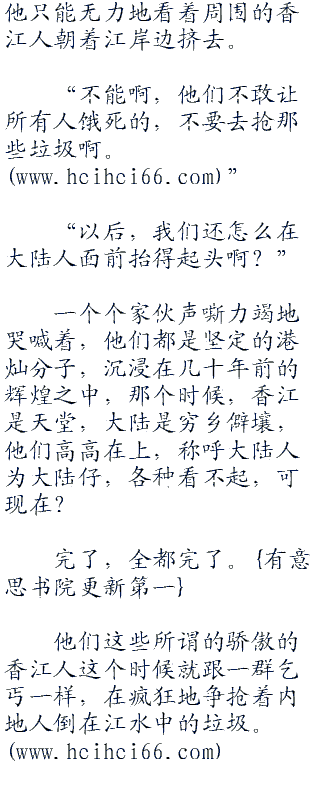 他只能无力地看着周围的香
江人朝着江岸边挤去。
“不能啊，他们不敢让
所有人饿死的，不要去抢那
些垃圾啊。
(www.hcihci66.com)”
“以后，我们还怎么在
大陆人面前抬得起头啊？”
一个个家伙声嘶力竭地
哭喊着，他们都是坚定的港
灿分子，沉浸在几十年前的
辉煌之中，那个时候，香江
是天堂，大陆是穷乡僻壤，
他们高高在上，称呼大陆人
为大陆仔，各种看不起，可
现在？
完了，全都完了。{有意
思书院更新第一}
他们这些所谓的骄傲的
香江人这个时候就跟一群乞
丐一样，在疯狂地争抢着内
地人倒在江水中的垃圾。
(www.hcihci66.com)